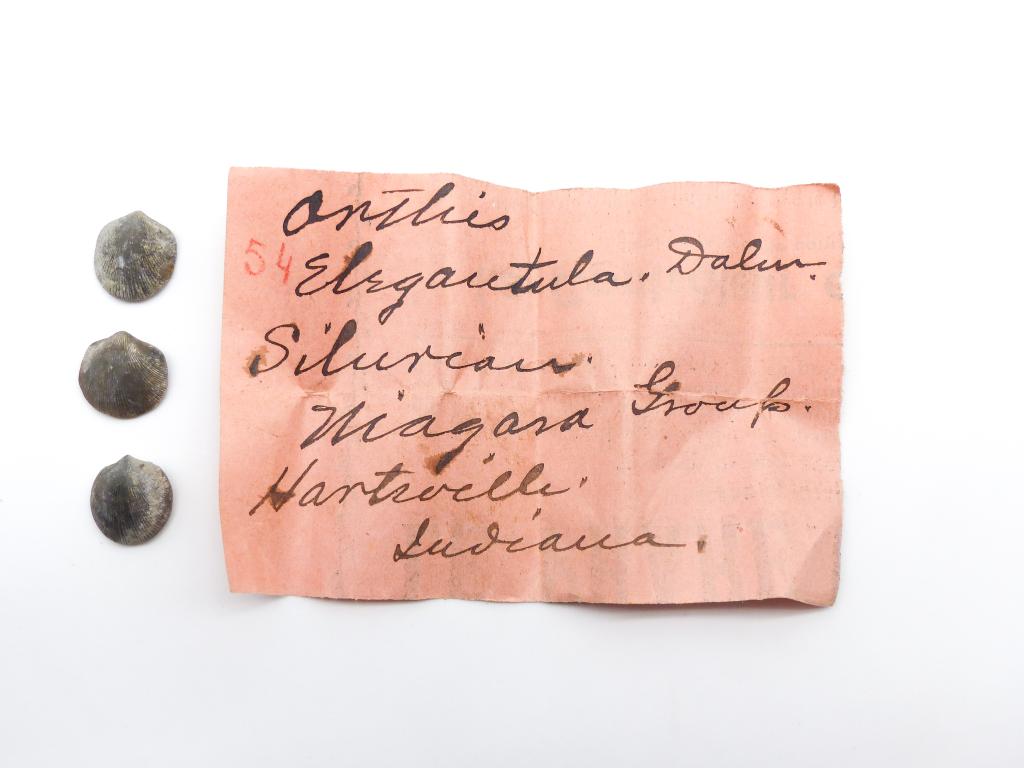 Orthis
54 Elegantula. Dalm.
Silurian.
Niagara Group.
Hartsville.
Indiana.